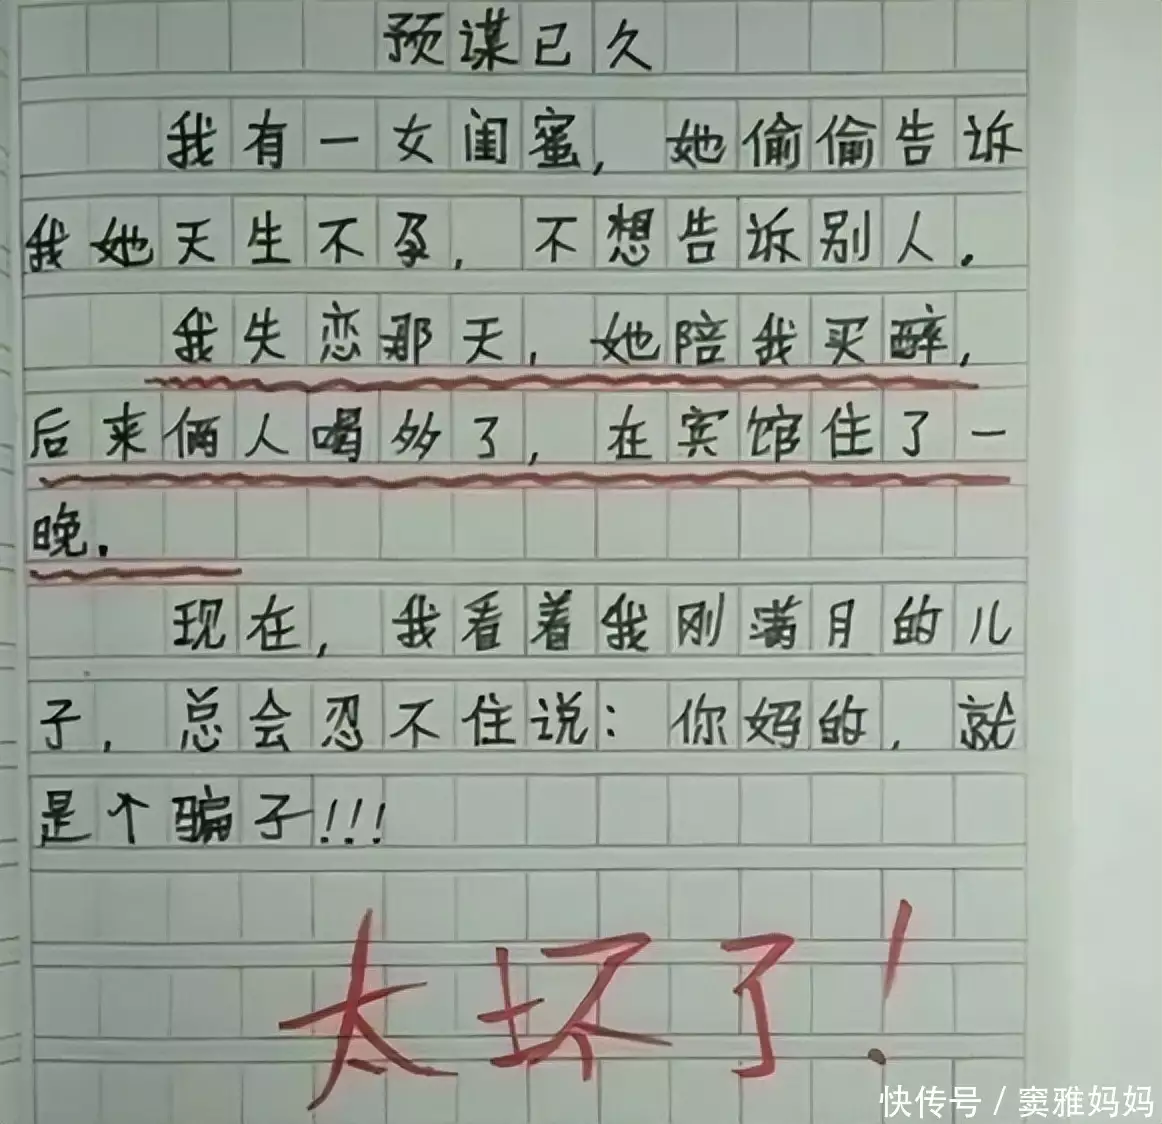 预谋已久
我有一女闺蜜，她偷偷告诉
我她天生不孕，不想告诉别人.
我失恋那天，她陪我买醉，
后来俩人喝多了，在宾馆住了一
晚.
现在，我看着我刚满月的儿
子，总会忍不住说：你妈的，就
是个骗子!!!
太坏了！
快传号 / 窦雅妈妈